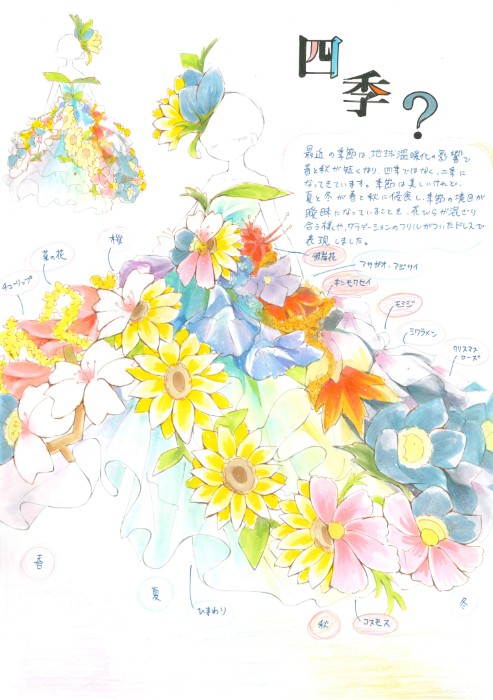 四季?
最近の季節は、地球温暖化の影響で
春と秋が短くなり、四季ではなく、二季に
なってきています。季節は美しいけれど、
夏と冬が春と秋に侵食し、季節の境目が
曖昧になっていることを、花びらが混ざり
合う様や、グラデーションのフリルがついたドレスで
表現しました。
彼岸花
アサガオ・アジサイ
桜
菜の花
チューリップ
キンモクセイ
モミジ
シクラメン
クリスマス
ローズ
春
夏
ひまわり
秋
コスモス
冬